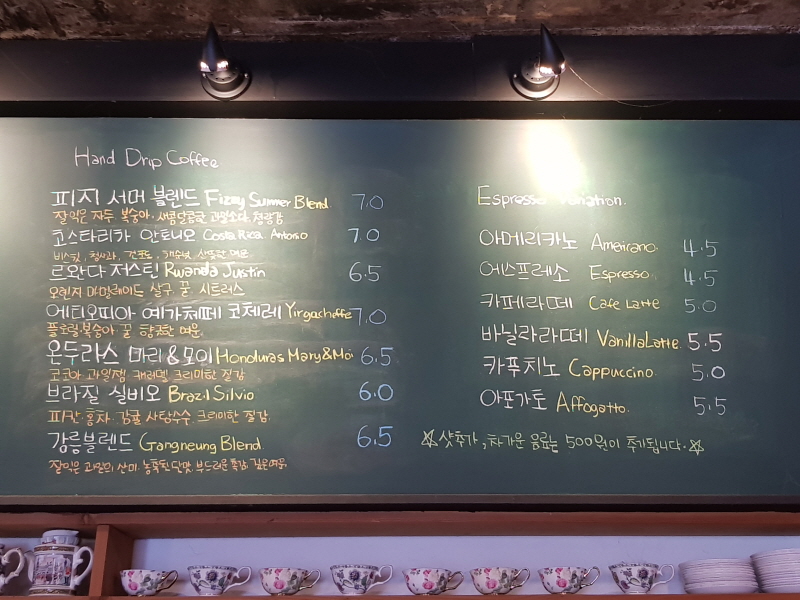 Hand Drip Coffee
피지 서머 블렌드 Fizzy Summer Blend 7.0
잘익은 자두 복숭아. 새콤달콤한 과일소다. 청량감
코스타리카 안토니오 Costa Rica. Antonio 7.0
비스킷, 청사과,
르완다 저스틴 Rwanda Justin 6.5
오렌지 마멀레이드 살구 꿀 시트러스
에티오피아 예가체페 코체레 Yirgacheffe 7.0
플로럴 복숭아 꿀 향긋한 여운
온두라스 마리&모이 Honduras Mary&Mo 6.5
코코아 과일잼 캐러멜 크리미한 질감
브라질 실비오 Brazil Silvio 6.0
피칸. 홍차. 감귤 사탕수수. 크리미한 질감.
강릉블렌드 Gangneung Blend. 6.5
잘익은 과일의 산미. 농축된 단맛. 부드러운 촉감. 깊은여운.
Espresso Variation.
아메리카노 Ameirano. 4.5
에스프레소 Espresso. 4.5
카페라떼 Cafe Latte 5.0
바닐라라떼 VanillaLatte. 5.5
카푸치노 Cappuccino. 5.0
아포가토 Affogatto. 5.5
☆샷추가, 차가운 음료는 500원이 추가됩니다.☆